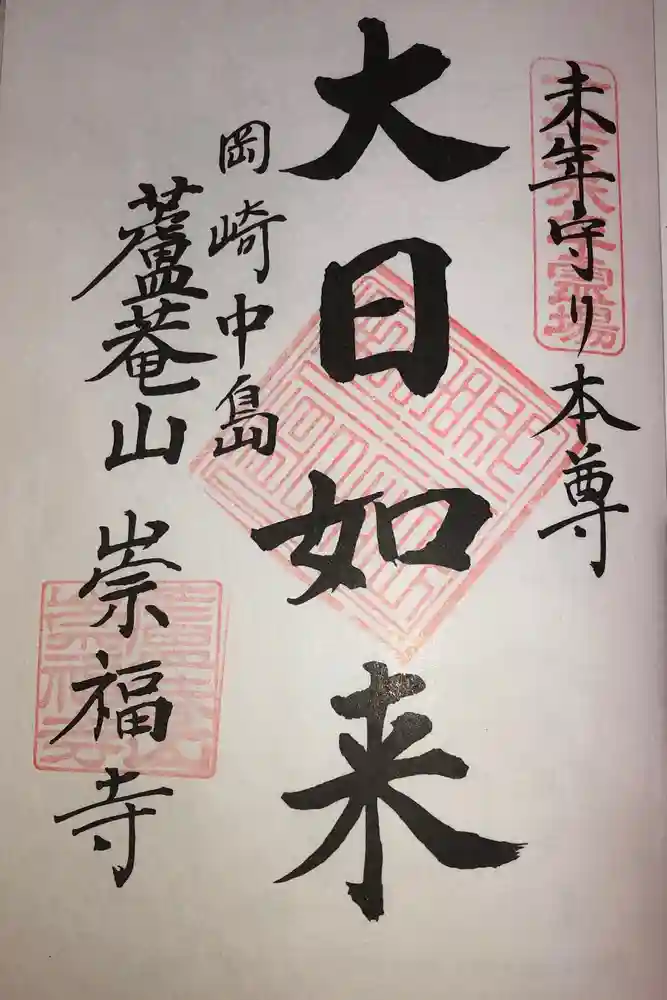 未年守り本尊
大日如来
岡崎中島
蘆菴山 崇福寺